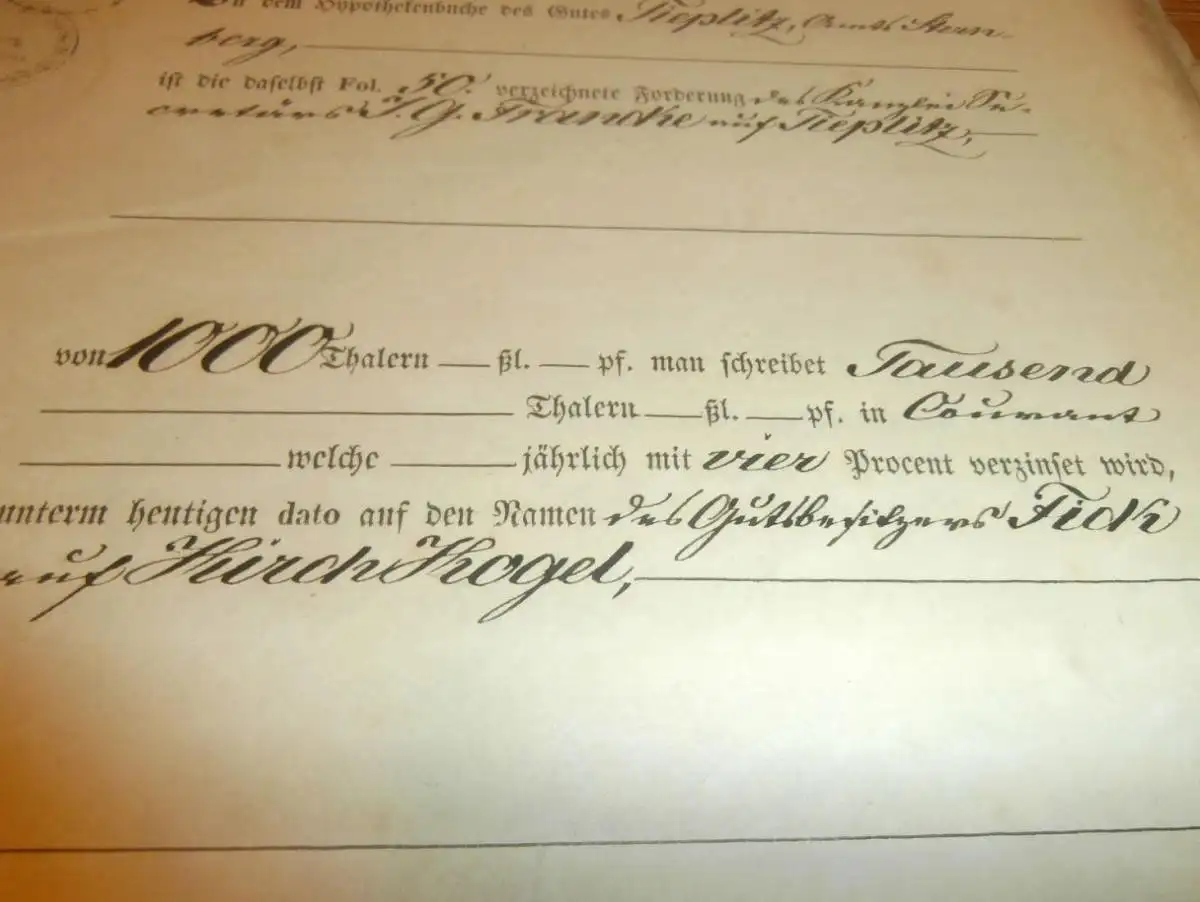 In dem Hypothekenbuche des Gutes Tieplitz, Amts Stern-
berg,
ist die daselbst Fol. 50. verzeichnete Forderung des Kanzlei Se-
cretärs J. G. Francke auf Tieplitz,
von 1000 Thalern — ßl. — pf. man schreibet Tausend
Thalern — ßl. — pf. in Courant
welche jährlich mit vier Procent verzinset wird,
unterm heutigen dato auf den Namen des Gutsbesitzers Fick
auf Kirch Kogel,